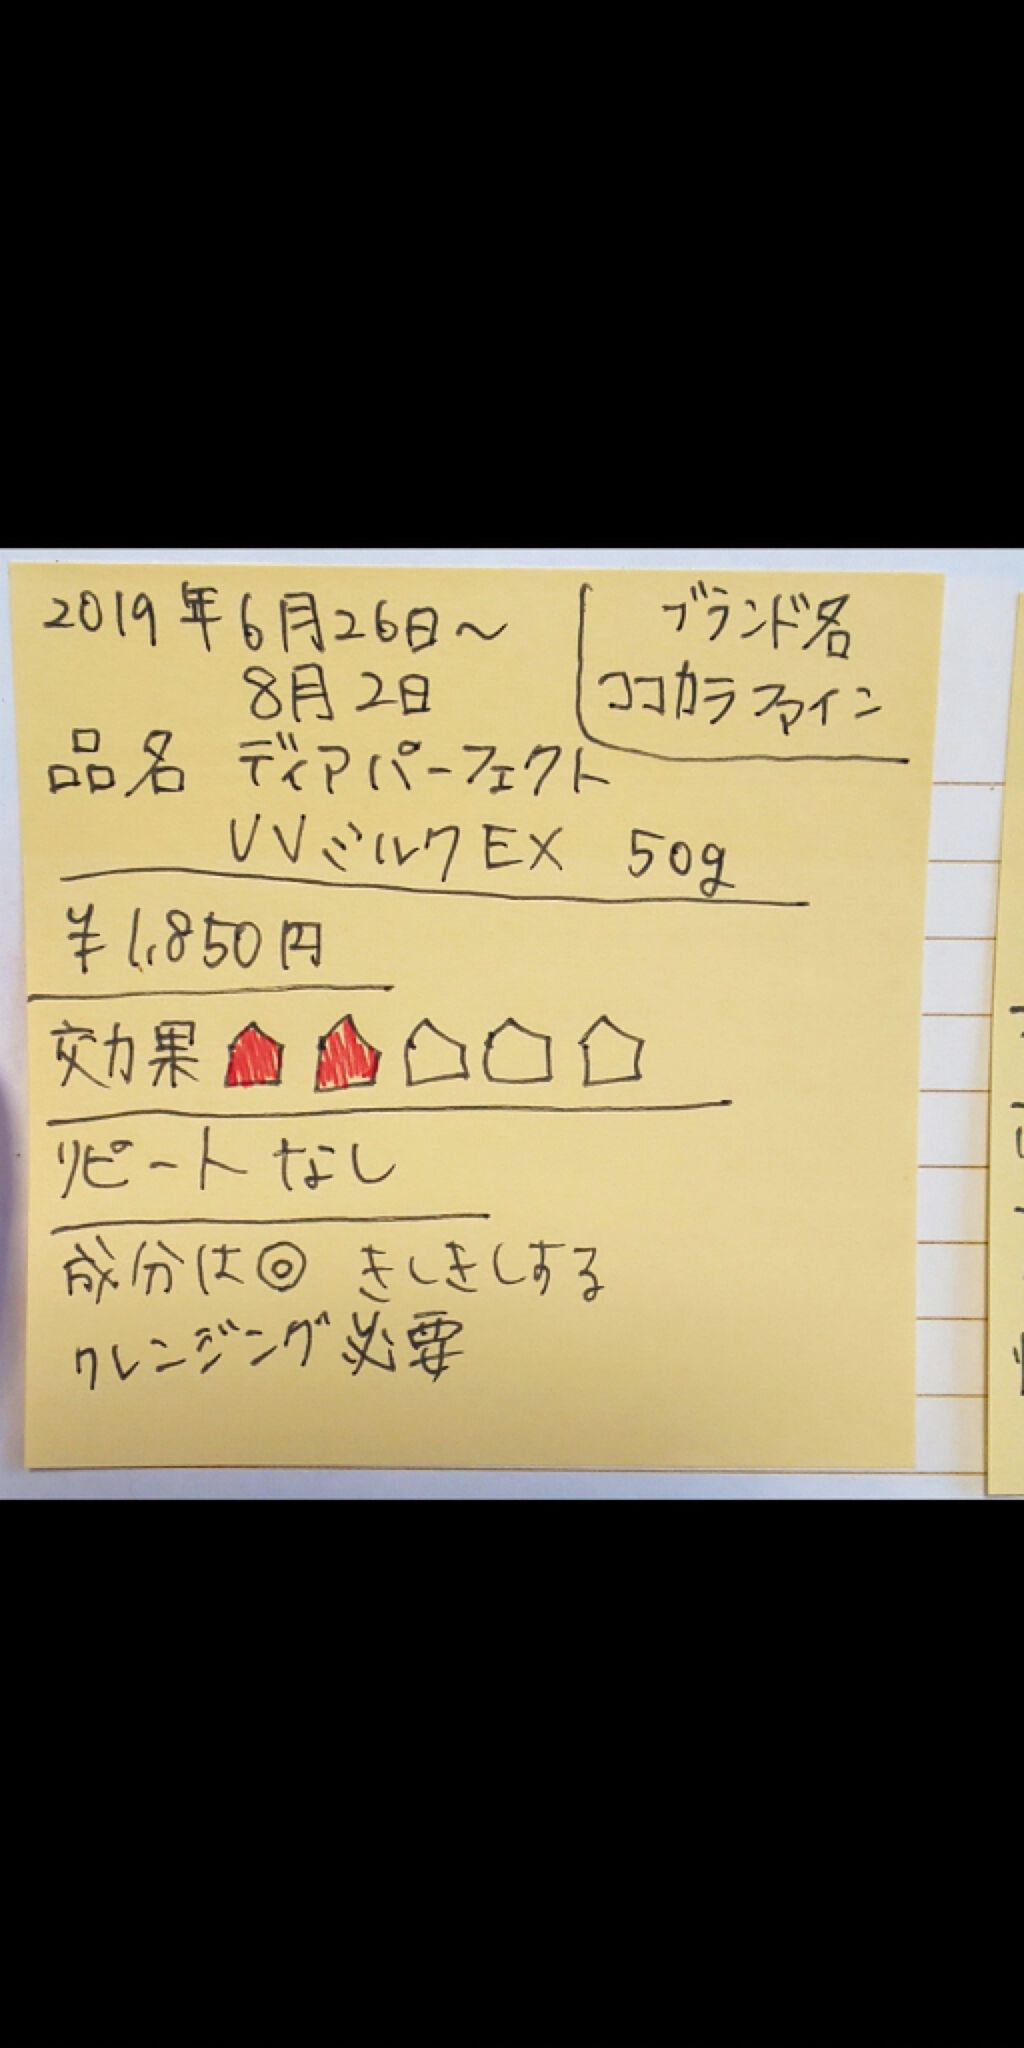 2019年6月26日~
8月2日
ブランド名
ココカラファイン
品名 ディアパーフェクト
UVミルクEX 50g
¥1,850円
効果
リピートなし
成分は◎ きしきしする
クレンジング必要